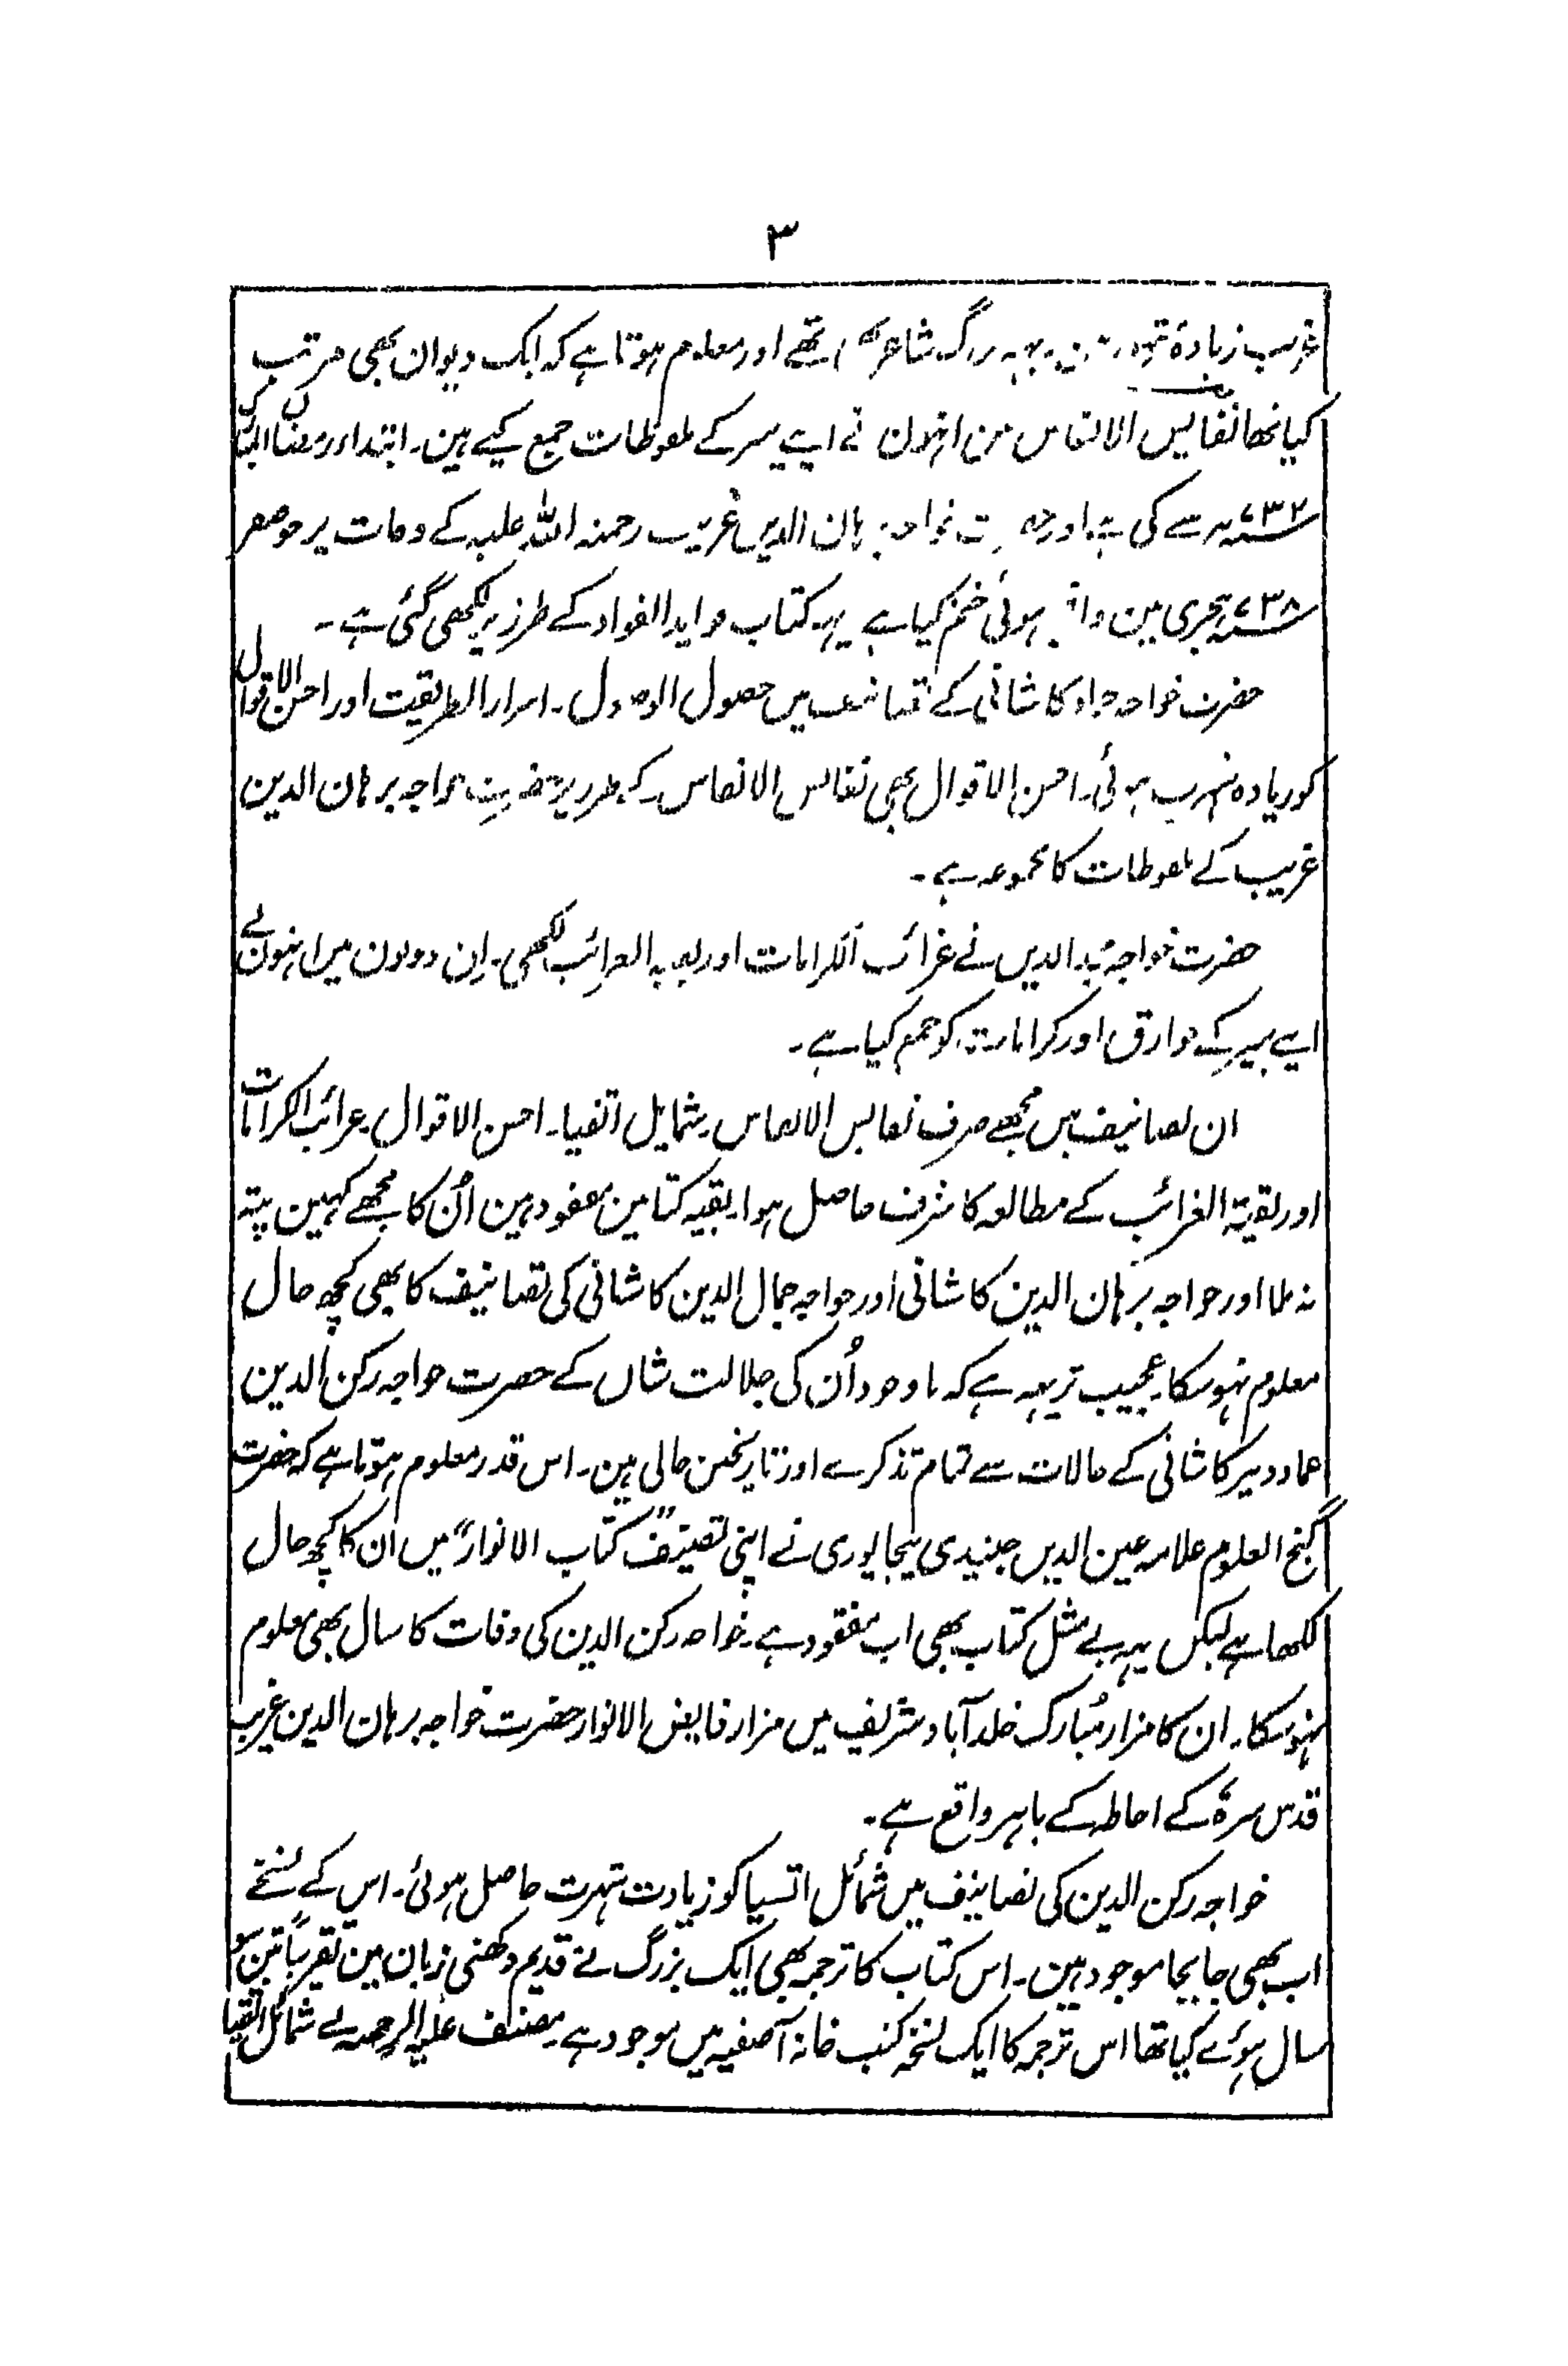 ۳
غریب زیادہ مشہور ہین یہہ بزرگ شاعر بھی تھے اور معلوم ہوتا ہے کہ ایک دیوان بھی مرتب
کیا تھا نفایس الانفاس مین انہون نے اپنے پیر کے ملفوظات جمع کیے ہین۔ ابتداء رمضان المبارک
۷۳۲ھ سے کی ہے اور حضرت خواجہ برہان الدین غریب رحمتہ اللہ علیہ کے وفات پر جو صفر
۷۳۸ھ ہجری مین واقع ہوئی ختم کیا ہے یہہ کتاب فواید الفواد کے طرز پر لکھی گئی ہے۔
حضرت خواجہ حماد کاشانی کے تصانیف میں حصول الوصول۔ اسرار الطریقیت اور احسن الاقوال
کو زیادہ شہرت ہوئی۔ احسن الاقوال بھی نفائس الانفاس کے طرز پر حضرت خواجہ برہان الدین
غریب کے ملفوظات کا مجموعہ ہے۔
حضرت خواجہ مجد الدین نے غرائب الکرامات اور بقیۃ الغرائب لکھی۔ اِن دونون میں انہون نے
اپنے پیر کے خوارق اور کرامات کو جمع کیا ہے۔
ان تصانیف میں مجھے صرف نفایس الانفاس۔ شمایل اتقیا۔ احسن الاقوال۔ غرائب الکرامات
اور بقیۃ الغرائب کے مطالعہ کا شرف حاصل ہوا۔ بقیہ کتابین مفقود ہین اُن کا مجھے کہین پتہ
نہ ملا اور خواجہ برہان الدین کاشانی اور خواجہ جمال الدین کاشانی کی تصانیف کا بھی کچھ حال
معلوم نہوسکا۔ عجیب تر یہہ ہے کہ باوجود اُن کی جلالت شان کے حضرت خواجہ رکن الدین
عماد دبیر کاشانی کے حالات سے تمام تذکرے اور تاریخین خالی ہین۔ اس قدر معلوم ہوتا ہے کہ حضرت
گنج العلوم علامہ عین الدین جنیدی بیجاپوری نے اپنی تصنیف "کتاب الانوار" میں ان کا کچھ حال
لکھا ہے لیکن یہہ بے مثل کتاب بھی اب مفقود ہے۔ خواجہ رکن الدین کی وفات کا سال بھی معلوم
نہوسکا۔ ان کا مزار مُبارک خلد آباد شریف میں مزار فایض الانوار حضرت خواجہ برہان الدین غریب
قدس سرہٗ کے احاطہ کے باہر واقع ہے۔
خواجہ رکن الدین کی تصانیف میں شمائل اتقیا کو زیادت شہرت حاصل ہوئی۔ اس کے نسخے
اب بھی جابجا موجود ہین۔ اس کتاب کا ترجمہ بھی ایک بزرگ نے قدیم دکھنی زبان مین تقریباً تین سو
سال ہوئے کیا تھا اس ترجمہ کا ایک نسخہ کتب خانہ آصفیہ میں موجود ہے۔ مصنف علیہ الرحمہ نے شمائل اتقیا